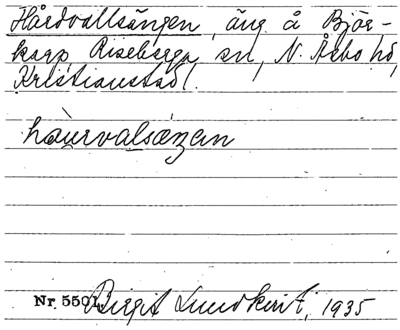 Hårdvallsängen, äng å Björ-
karp, Riseberga sn, N. Åsbo hd,
Kristianstad l.
hàu̜rvalsǽŋen
Nr 5501. Birgit Lundkvist, 1935